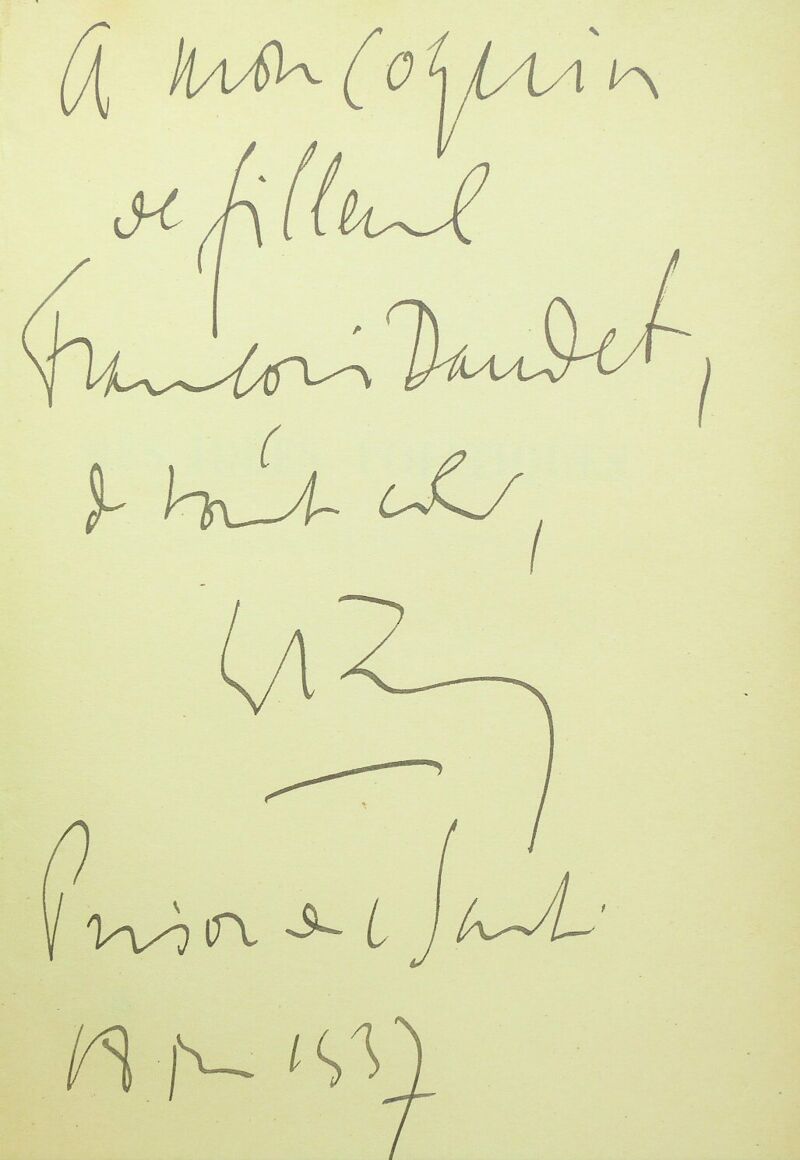 A mon coquin
de filleul
François Daudet,
de tout cœur,
Prison de la Santé
18 juin 1937